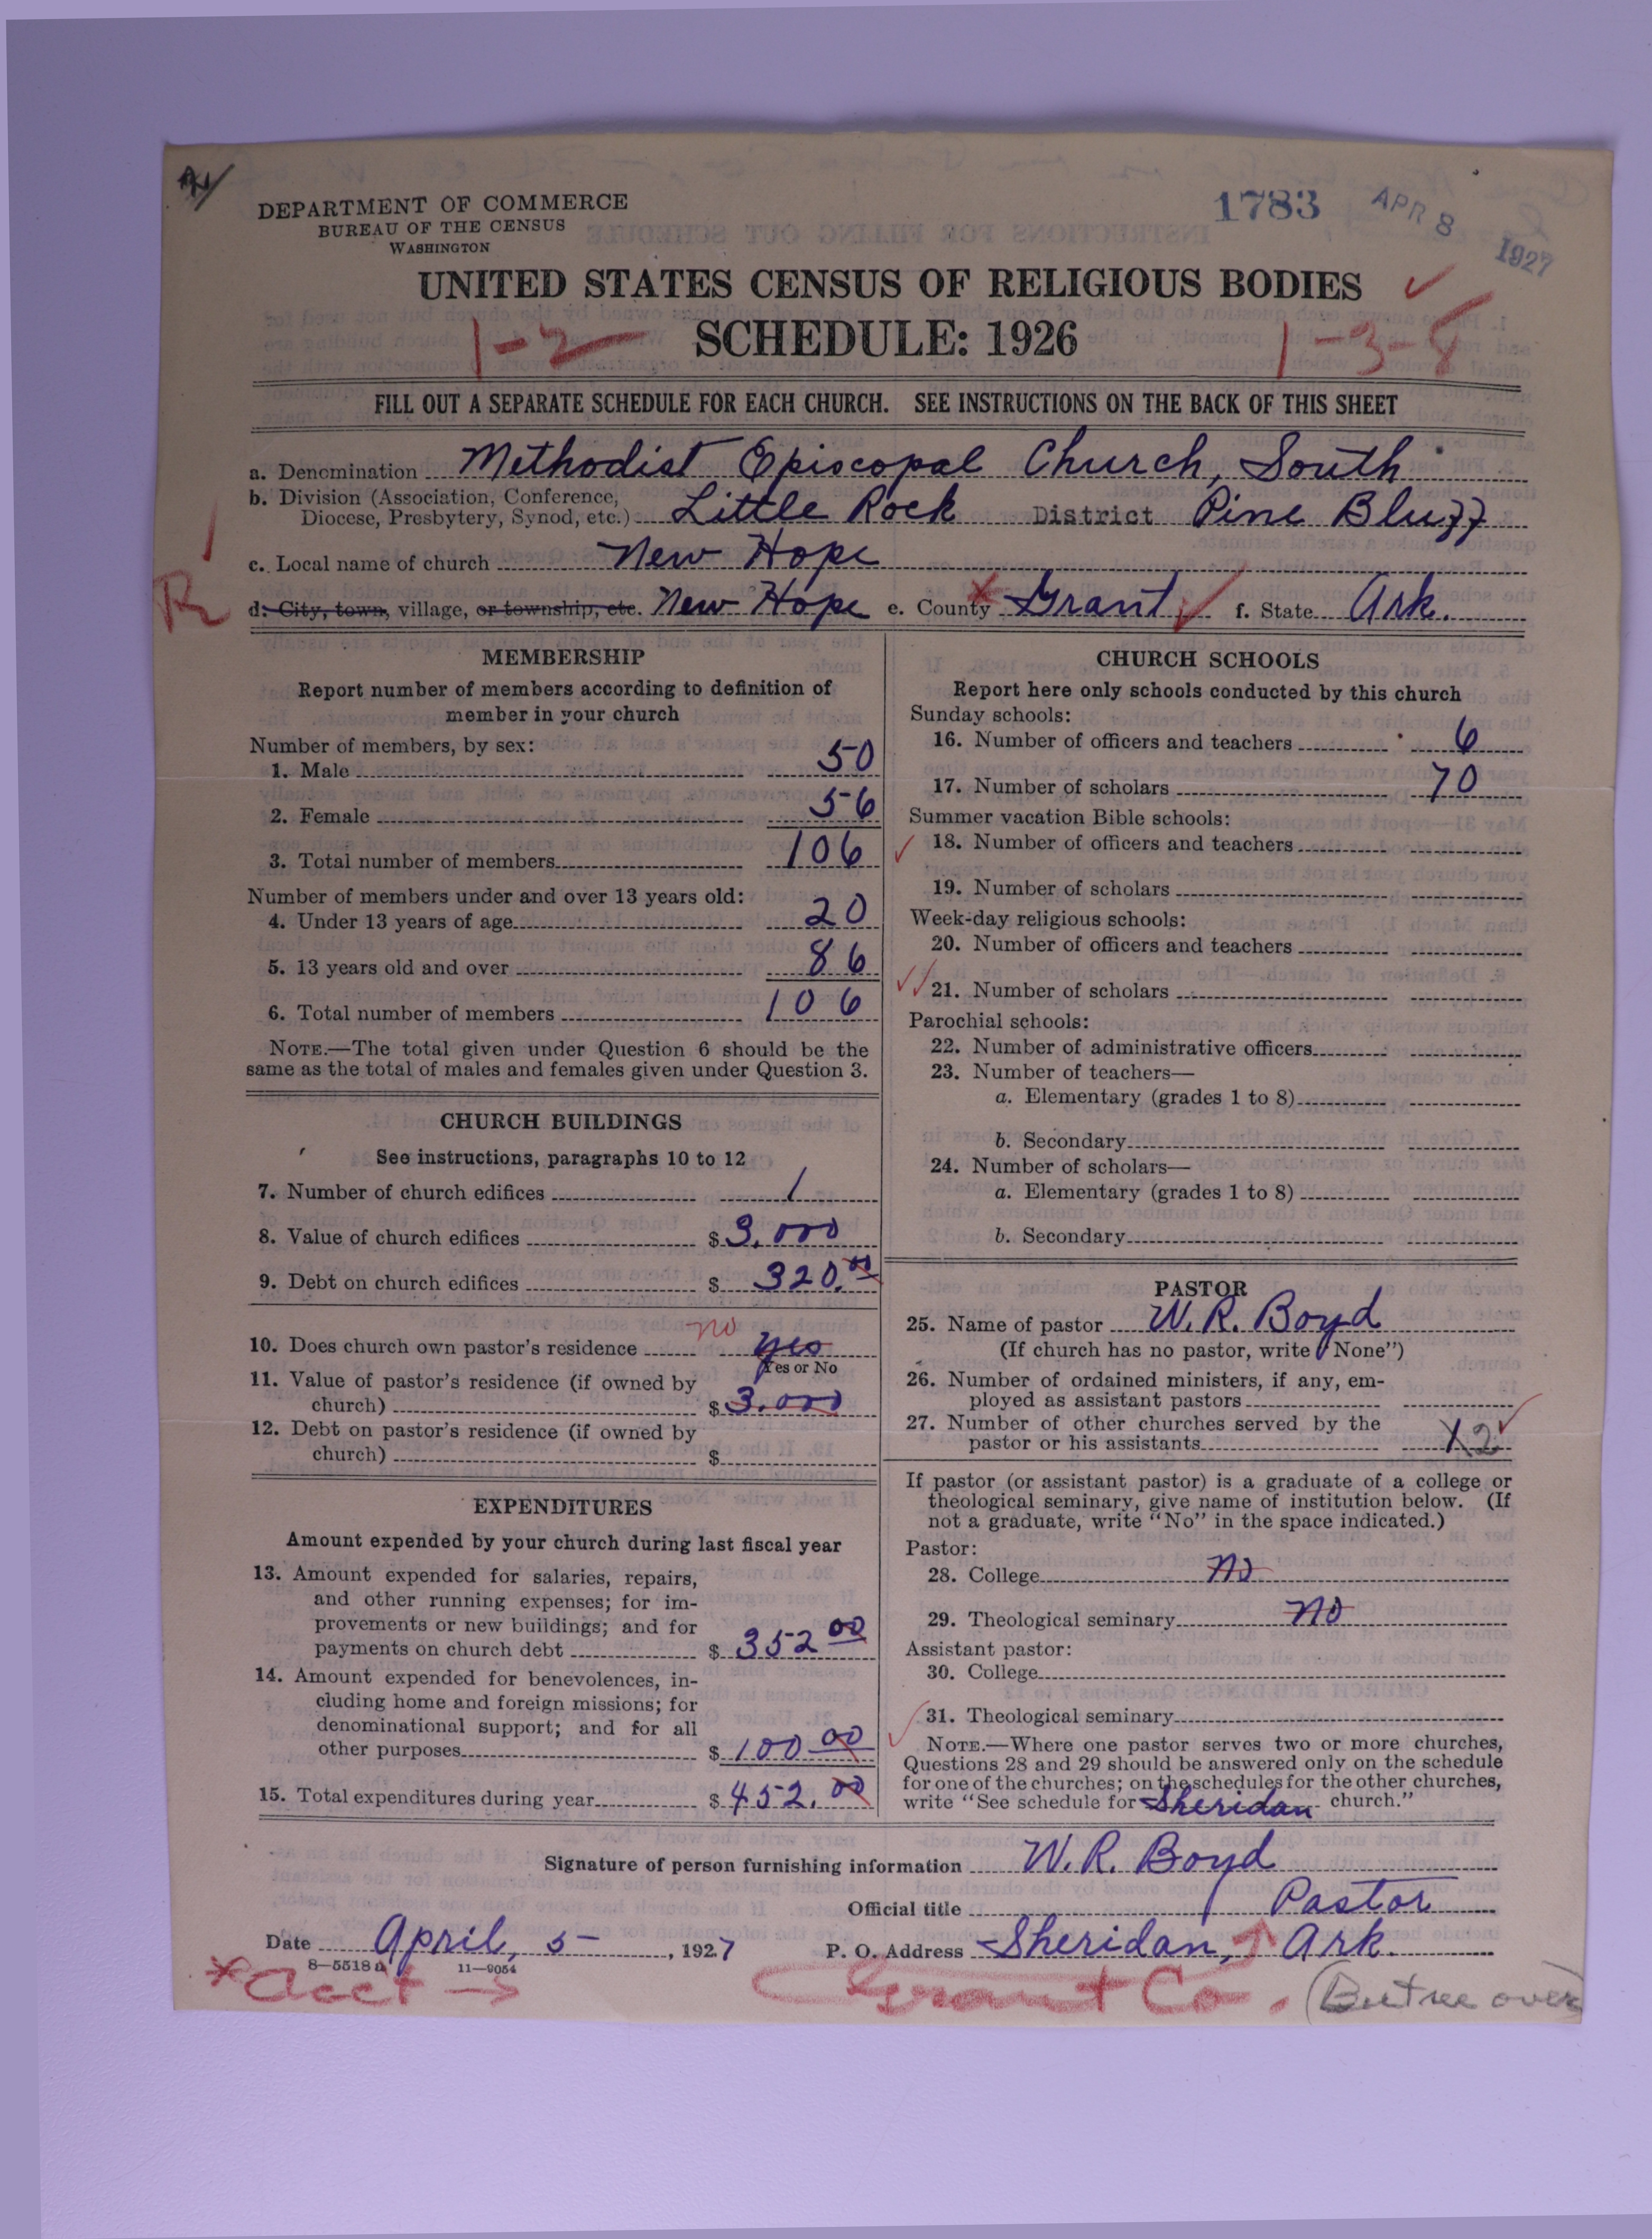 DEPARTMENT OF COMMERCE
BUREAU OF THE CENSUS
WASHINGTON
1783
APR 8 1927
UNITED STATES CENSUS OF RELIGIOUS BODIES
SCHEDULE: 1926
1-2
1-3-8
FILL OUT A SEPARATE SCHEDULE FOR EACH CHURCH. SEE INSTRUCTIONS ON THE BACK OF THIS SHEET
a. Denomination Methodist Episcopal Church, South
b. Division (Association, Conference,
Diocese, Presbytery, Synod, etc.) Little Rock District Pine Bluff
c. Local name of church New Hope
R
d. City, town, village, or township, etc. New Hope e. County Grant f. State Ark.
MEMBERSHIP
Report number of members according to definition of
member in your church
Number of members, by sex:
1. Male 50
2. Female 56
3. Total number of members 106
Number of members under and over 13 years old:
4. Under 13 years of age 20
5. 13 years old and over 86
6. Total number of members 106
NOTE.—The total given under Question 6 should be the
same as the total of males and females given under Question 3.
CHURCH BUILDINGS
See instructions, paragraphs 10 to 12
7. Number of church edifices 1
8. Value of church edifices $ 3,000
9. Debt on church edifices $ 320.00
no
10. Does church own pastor's residence yes
Yes or No
11. Value of pastor's residence (if owned by
church) $ 3.000
12. Debt on pastor's residence (if owned by
church) $
EXPENDITURES
Amount expended by your church during last fiscal year
13. Amount expended for salaries, repairs,
and other running expenses; for im-
provements or new buildings; and for
payments on church debt $ 352 00
14. Amount expended for benevolences, in-
cluding home and foreign missions; for
denominational support; and for all
other purposes $ 100 00
15. Total expenditures during year $ 452.00
CHURCH SCHOOLS
Report here only schools conducted by this church
Sunday schools:
16. Number of officers and teachers 6
17. Number of scholars 70
Summer vacation Bible schools:
18. Number of officers and teachers
19. Number of scholars
Week-day religious schools:
20. Number of officers and teachers
21. Number of scholars
Parochial schools:
22. Number of administrative officers
23. Number of teachers—
a. Elementary (grades 1 to 8)
b. Secondary
24. Number of scholars—
a. Elementary (grades 1 to 8)
b. Secondary
PASTOR
25. Name of pastor W. R. Boyd
(If church has no pastor, write "None")
26. Number of ordained ministers, if any, em-
ployed as assistant pastors
27. Number of other churches served by the
pastor or his assistants 2
If pastor (or assistant pastor) is a graduate of a college or
theological seminary, give name of institution below. (If
not a graduate, write "No" in the space indicated.)
Pastor:
28. College no
29. Theological seminary no
Assistant pastor:
30. College
31. Theological seminary
NOTE.—Where one pastor serves two or more churches,
Questions 28 and 29 should be answered only on the schedule
for one of the churches; on the schedules for the other churches,
write "See schedule for Sheridan church."
Signature of person furnishing information W. R. Boyd
Official title Pastor
Date April, 5, 1927 P. O. Address Sheridan, Ark.
8—5518 a 11—9054
*acct → Grant Co. (But see over)